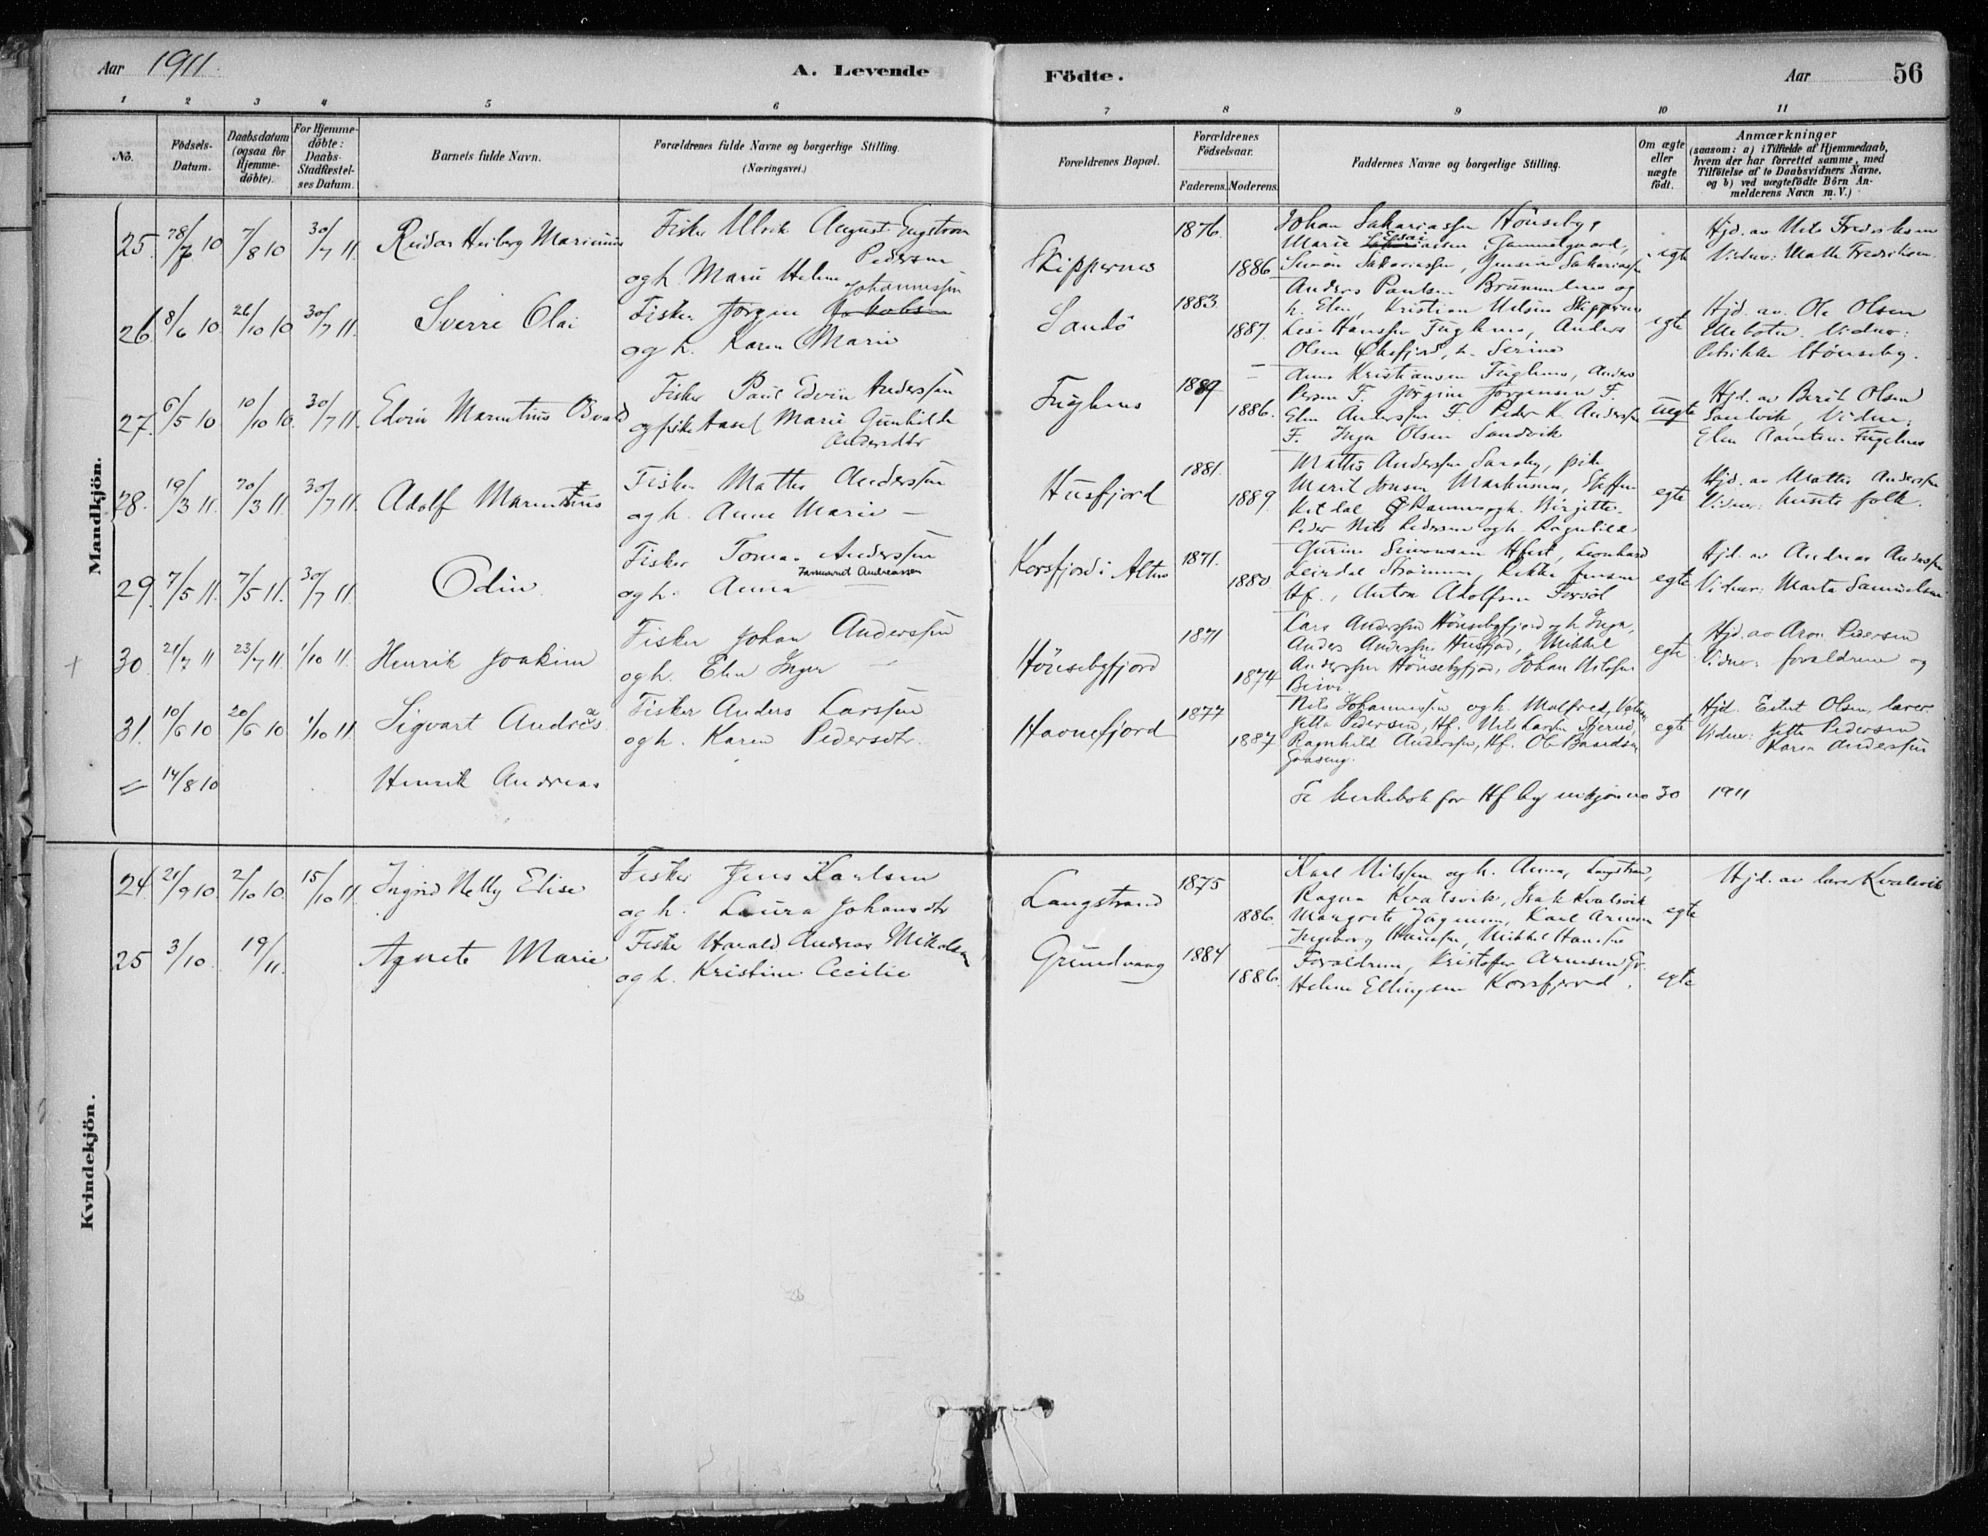 Aar 1911. A. Levende Födte. Aar 56
1 2 3 4 5 6 7 8 9 10 11
No. Födsels-Datum. Daabsdatum (ogsaa for Hjemme-döbte). For Hjemme-döbte: Daabs-Stadfæstel-ses Datum. Barnets fulde Navn. Forældrenes fulde Navne og borgerlige Stilling. (Næringsvei.) Forældrenes Bopæl. Forældrenes Födselsaar. Faderens. Moderens. Faddernes Navne og borgerlige Stilling. Om ægte eller uægte födt. Anmærkninger (saasom: a) i Tilfælde af Hjemmedaab, hvem der har forrettet samme, med Tilföielse af to Daabsvidners Navne, og b) ved uægtefödte Börn An-melderens Navn m. V.)
Mandkjön.
25. 7/8 10 30/7 11. Reidar Heiberg Marinius Fisker Ulrik August Engstrom Pedersen
og h. Marie Helene Johannessen
Skippernes 1876. 1886 Johan Sakariassen Hönseby,
Marie Gammelgaard,
Simon Sakariassen, Jensine Sakariassen
egte Hjd. av Nils Fredriksen
Vidner: Mathe Fredriksen
26. 8/6 10 26/10 10 30/7 11. Sverre Olai Fisker Jørgen Jakobsen
og h. Karen Marie
Sandö 1883 1887. Anders Paulsen Brummelnes og
h. Elen, Kristian Nilsen Skippernes
Hanssen Fuglenes, Anders
Olsen Øksfjord, h. Serine
egte Hjd. av. Ole Olsen
Vidner:
Petrikke Hönseby.
27. 6/5 10 10/10 10. 30/7 11. Edvin Marentius Osvald Fisker Paul Edvin Anderssen
og pike Aasel Marie Gunhilde
Andersdtr
Fuglenes 1889 1886. Anna Kristiansen Fuglenes, Anders
Persen F. Jörgine Jörgensen F.
Elen Anderssen F. Peder K. Anderssen
F. Inga Olsen Sandvik
uegte Hjd. av Berit Olsen
Sandvik, Vidner:
Elen Fuglenes
28. 19/3 11. 20/3 11. 30/7 11. Adolf Marentius Fisker Mathis Anderssen
og h. Anne Marie —
Husfjord 1881. 1889. Mathis Anderssen Saraby, pike
Marit Jonsen Markusen, Steffen
og h. Birgitte.
Peder Nils Pedersen og h. Ragnhild
egte Hjd. av Mathis Anderssen
Vidner: husets folk.
29. 7/5 11. 7/5 11. 30/7 11. Odin. Fisker Tomas Anderssen
og h. Anna Andreassen
Korsfjord i Alten 1871. 1880 Gurine Simonsen Hfest, Leonhard
Leirdal Strömmen, Rikka Jensen
Hf., Anton Adolfsen Forsöl
egte Hjd. av Andreas Anderssen
Vidner: Marta Samuelsen
30 21/7 11 23/7 11. 1/10 11. Henrik Joakim Fisker Johan Anderssen
og h. Elen Inger —
Hönsebyfjord 1871 1874 Lars Anderssen Hönsebyfjord og h. Inga,
Anders Anderssen Husfjord, Mikkel
Anderssen Hönsebyfjord, Johan Nilssen
egte Hjd. av Aron Pedersen
Vidner: forældrene og
31. 10/6 10 20/6 10 1/10 11. Sigvart Andreas Fisker Anders Larssen
og h. Karen Pedersdtr.
Havnefjord 1877 1887 Nils Johannessen og h. Malfred,
Jetta Pedersen, Hf. Nils Larsen
Ragnhild Anderssen, Hf. Ole Baardsen
egte Hjd. Eilert Olsen, lærer
Vidner: Jette Pedersen
Karen Anderssen
= 14/8 10 Henrik Andreas Se kirkebok for Hf by mkjøn no 30 1911
Kvindekjön.
24 21/9 10. 2/10 10. 15/10 11. Ingrid Nelly Elise Fisker Jens Karlsen
og h. Laura Johansdtr
Langstrand 1875 1886. Karl Nilssen og h. Anna, Langstrand,
Ragna Kvalsvik, Isak Kvalsvik
Margrete Karl Arnesen
Ingeborg Hanssen, Mikkel Hanssen
egte Hjd. av lærer Kvalsvik
25 3/10. 19/11. Agnete Marie Fisker Harald Andreas Mikalsen
og h. Kristine Cecilie
Grundvaag 1884 1886. Forældrene, Kristofer Arnesen Gr.
Helene Ellingsen Korsfjord.
egte